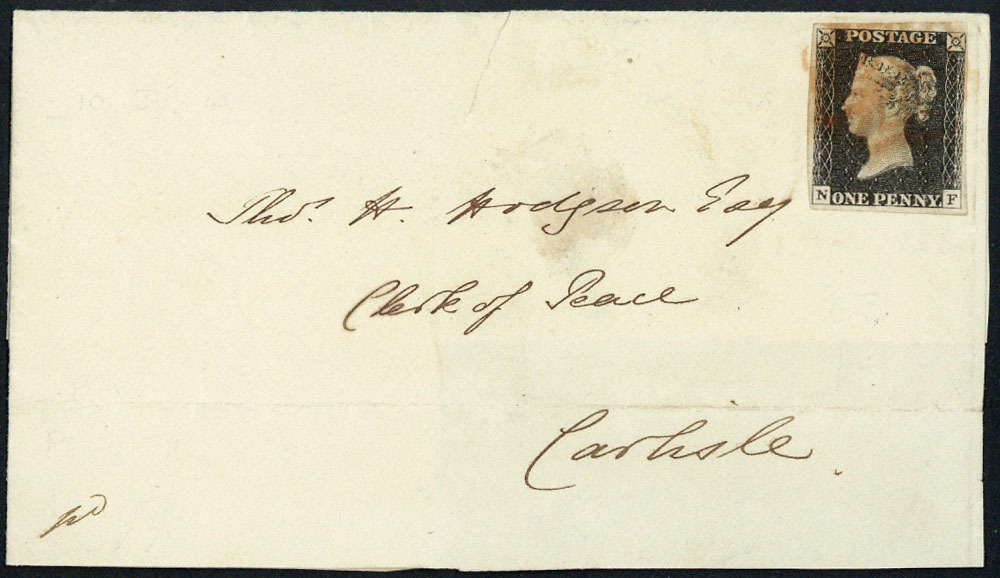 POSTAGE
N ONE PENNY F
Thos. H. Hodgson Esq
Clerk of Peace
Carlisle.
pd